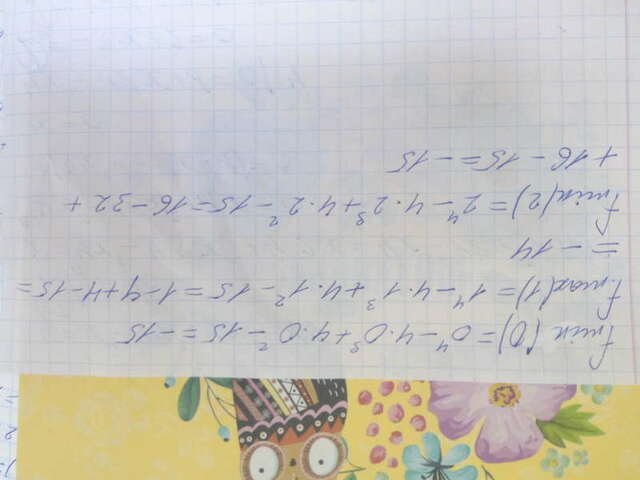 fmin(0)=0⁴-4·0³+4·0²-15=-15
fmax(1)=1⁴-4·1³+4·1²-15=1-4+4-15=
=-14
fmin(2)=2⁴-4·2³+4·2²-15=16-32+
+16-15=-15